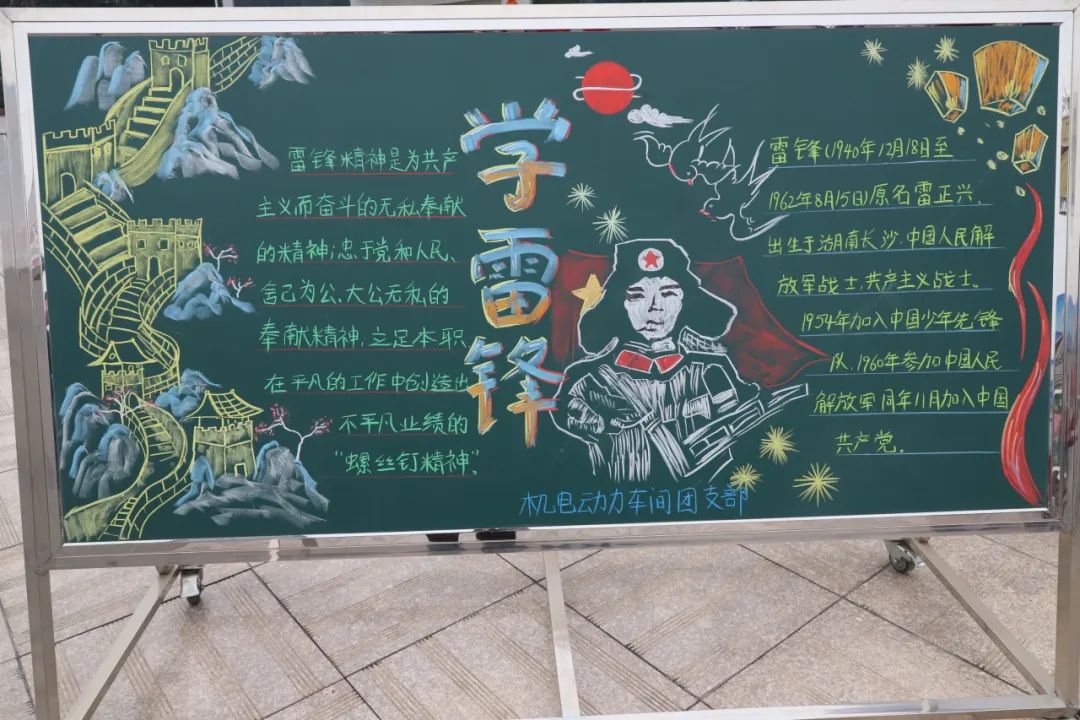 雷锋精神是为共产
主义而奋斗的无私奉献
的精神;忠于党和人民、
舍己为公、大公无私的
奉献精神,立足本职
在平凡的工作中创造出
不平凡业绩的
“螺丝钉精神”。
学雷锋
雷锋(1940年12月18日至
1962年8月15日)原名雷正兴,
出生于湖南长沙,中国人民解
放军战士,共产主义战士。
1954年加入中国少年先锋
队,1960年参加中国人民
解放军,同年11月加入中国
共产党。
机电动力车间团支部